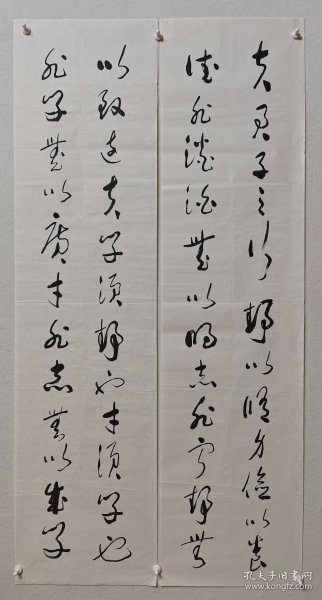 夫君子之行静以修身俭以养
德非澹泊无以明志非宁静无
以致远夫学须静也才须学也
非学无以广才非志无以成学
孔夫子旧书网
www.kongfz.com